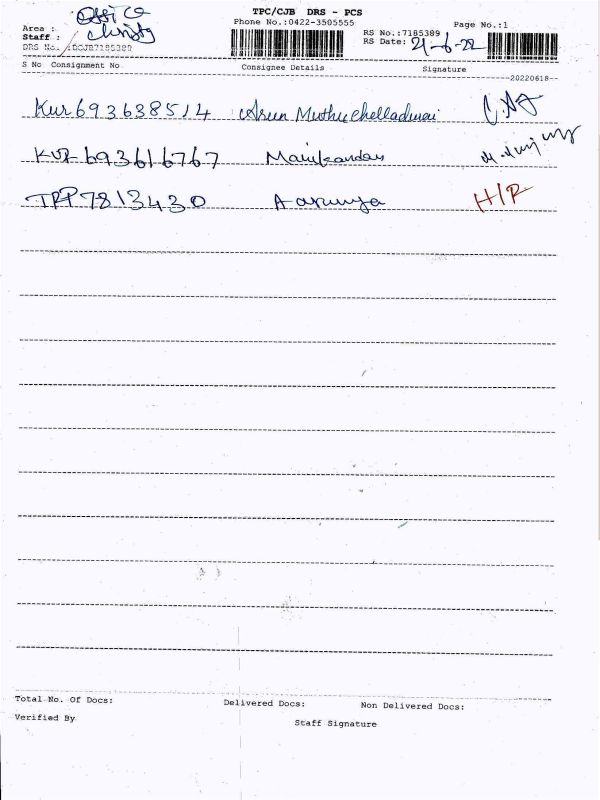 TPC/CJB DRS - PCS
Office
Phone No.:0422-3505555
Page No.:1
Area :
RS No.:7185389
Staff : Christy
RS Date: 21-6-22
DRS No. :DCJB7185389
S No Consignment No Consignee Details Signature
20220618
Kur693638514 Arun Muthuchelladurai
KUR693616767 Manikandan
TRP7813430 Aarunya H/R
Total No. Of Docs: Delivered Docs: Non Delivered Docs:
Verified By Staff Signature